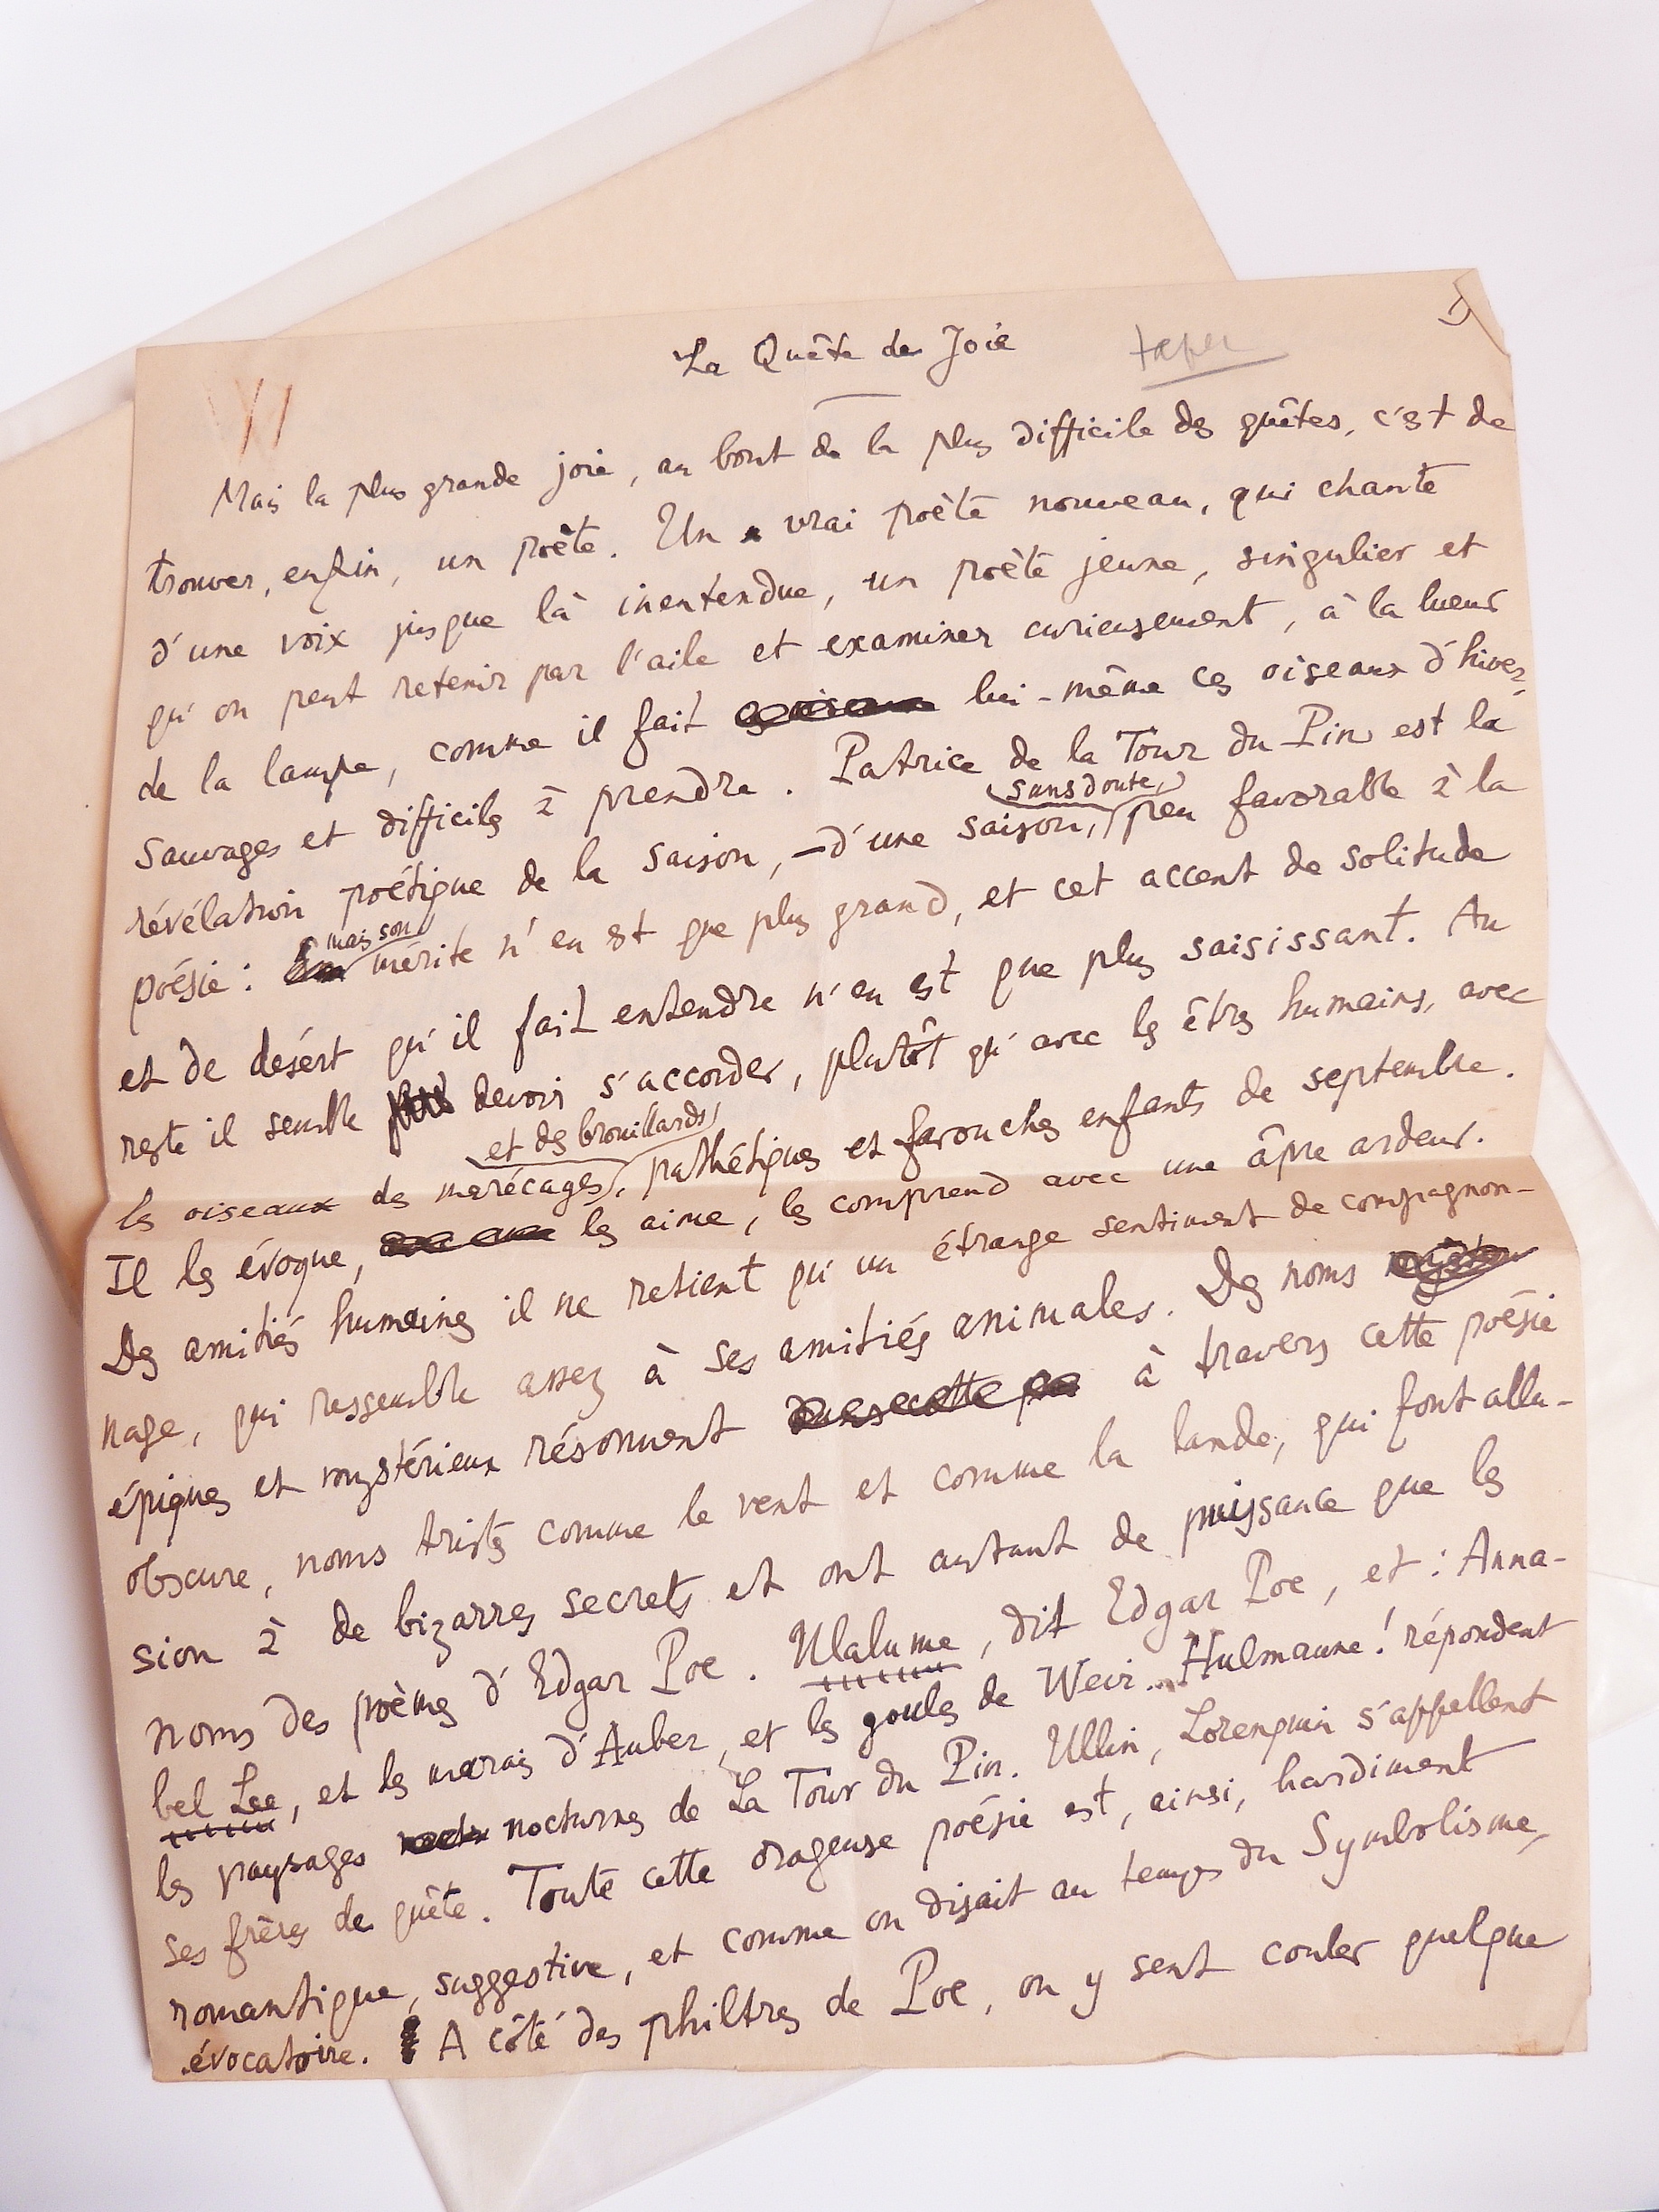 La Quête de Joie
taper
Mais la plus grande joie, au bout de la plus difficile des quêtes, c'est de
trouver, enfin, un poète. Un vrai poète nouveau, qui chante
d'une voix jusque là inentendue, un poète jeune, singulier et
qu'on peut retenir par l'aile et examiner curieusement, à la lueur
de la lampe, comme il fait lui-même ces oiseaux d'hiver,
sauvages et difficiles à prendre. Patrice de la Tour du Pin est la
révélation poétique de la saison, – d'une saison, sans doute, peu favorable à la
poésie : mais son mérite n'en est que plus grand, et cet accent de solitude
et de désert qu'il fait entendre n'en est que plus saisissant. Au
reste il semble devoir s'accorder, plutôt qu'avec les êtres humains, avec
les oiseaux des marécages et des brouillards, pathétiques et farouches enfants de septembre.
Il les évoque, les aime, les comprend avec une âpre ardeur.
Des amitiés humaines il ne retient qu'un étrange sentiment de compagnon-
nage, qui ressemble assez à ses amitiés animales. Des noms
épiques et mystérieux résonnent à travers cette poésie
obscure, noms tristes comme le vent et comme la lande, qui font allu-
sion à de bizarres secrets et ont autant de puissance que les
noms des poèmes d'Edgar Poe. Ulalume, dit Edgar Poe, et : Anna-
bel Lee, et les marais d'Auber, et les goules de Weir... Hulmaune ! répondent
les paysages nocturnes de La Tour du Pin. Ullin, Lorenquin s'appellent
ses frères de quête. Toute cette orageuse poésie est, ainsi, hardiment
romantique, suggestive, et comme on disait au temps du Symbolisme,
évocatoire. A côté des philtres de Poe, on y sent couler quelque